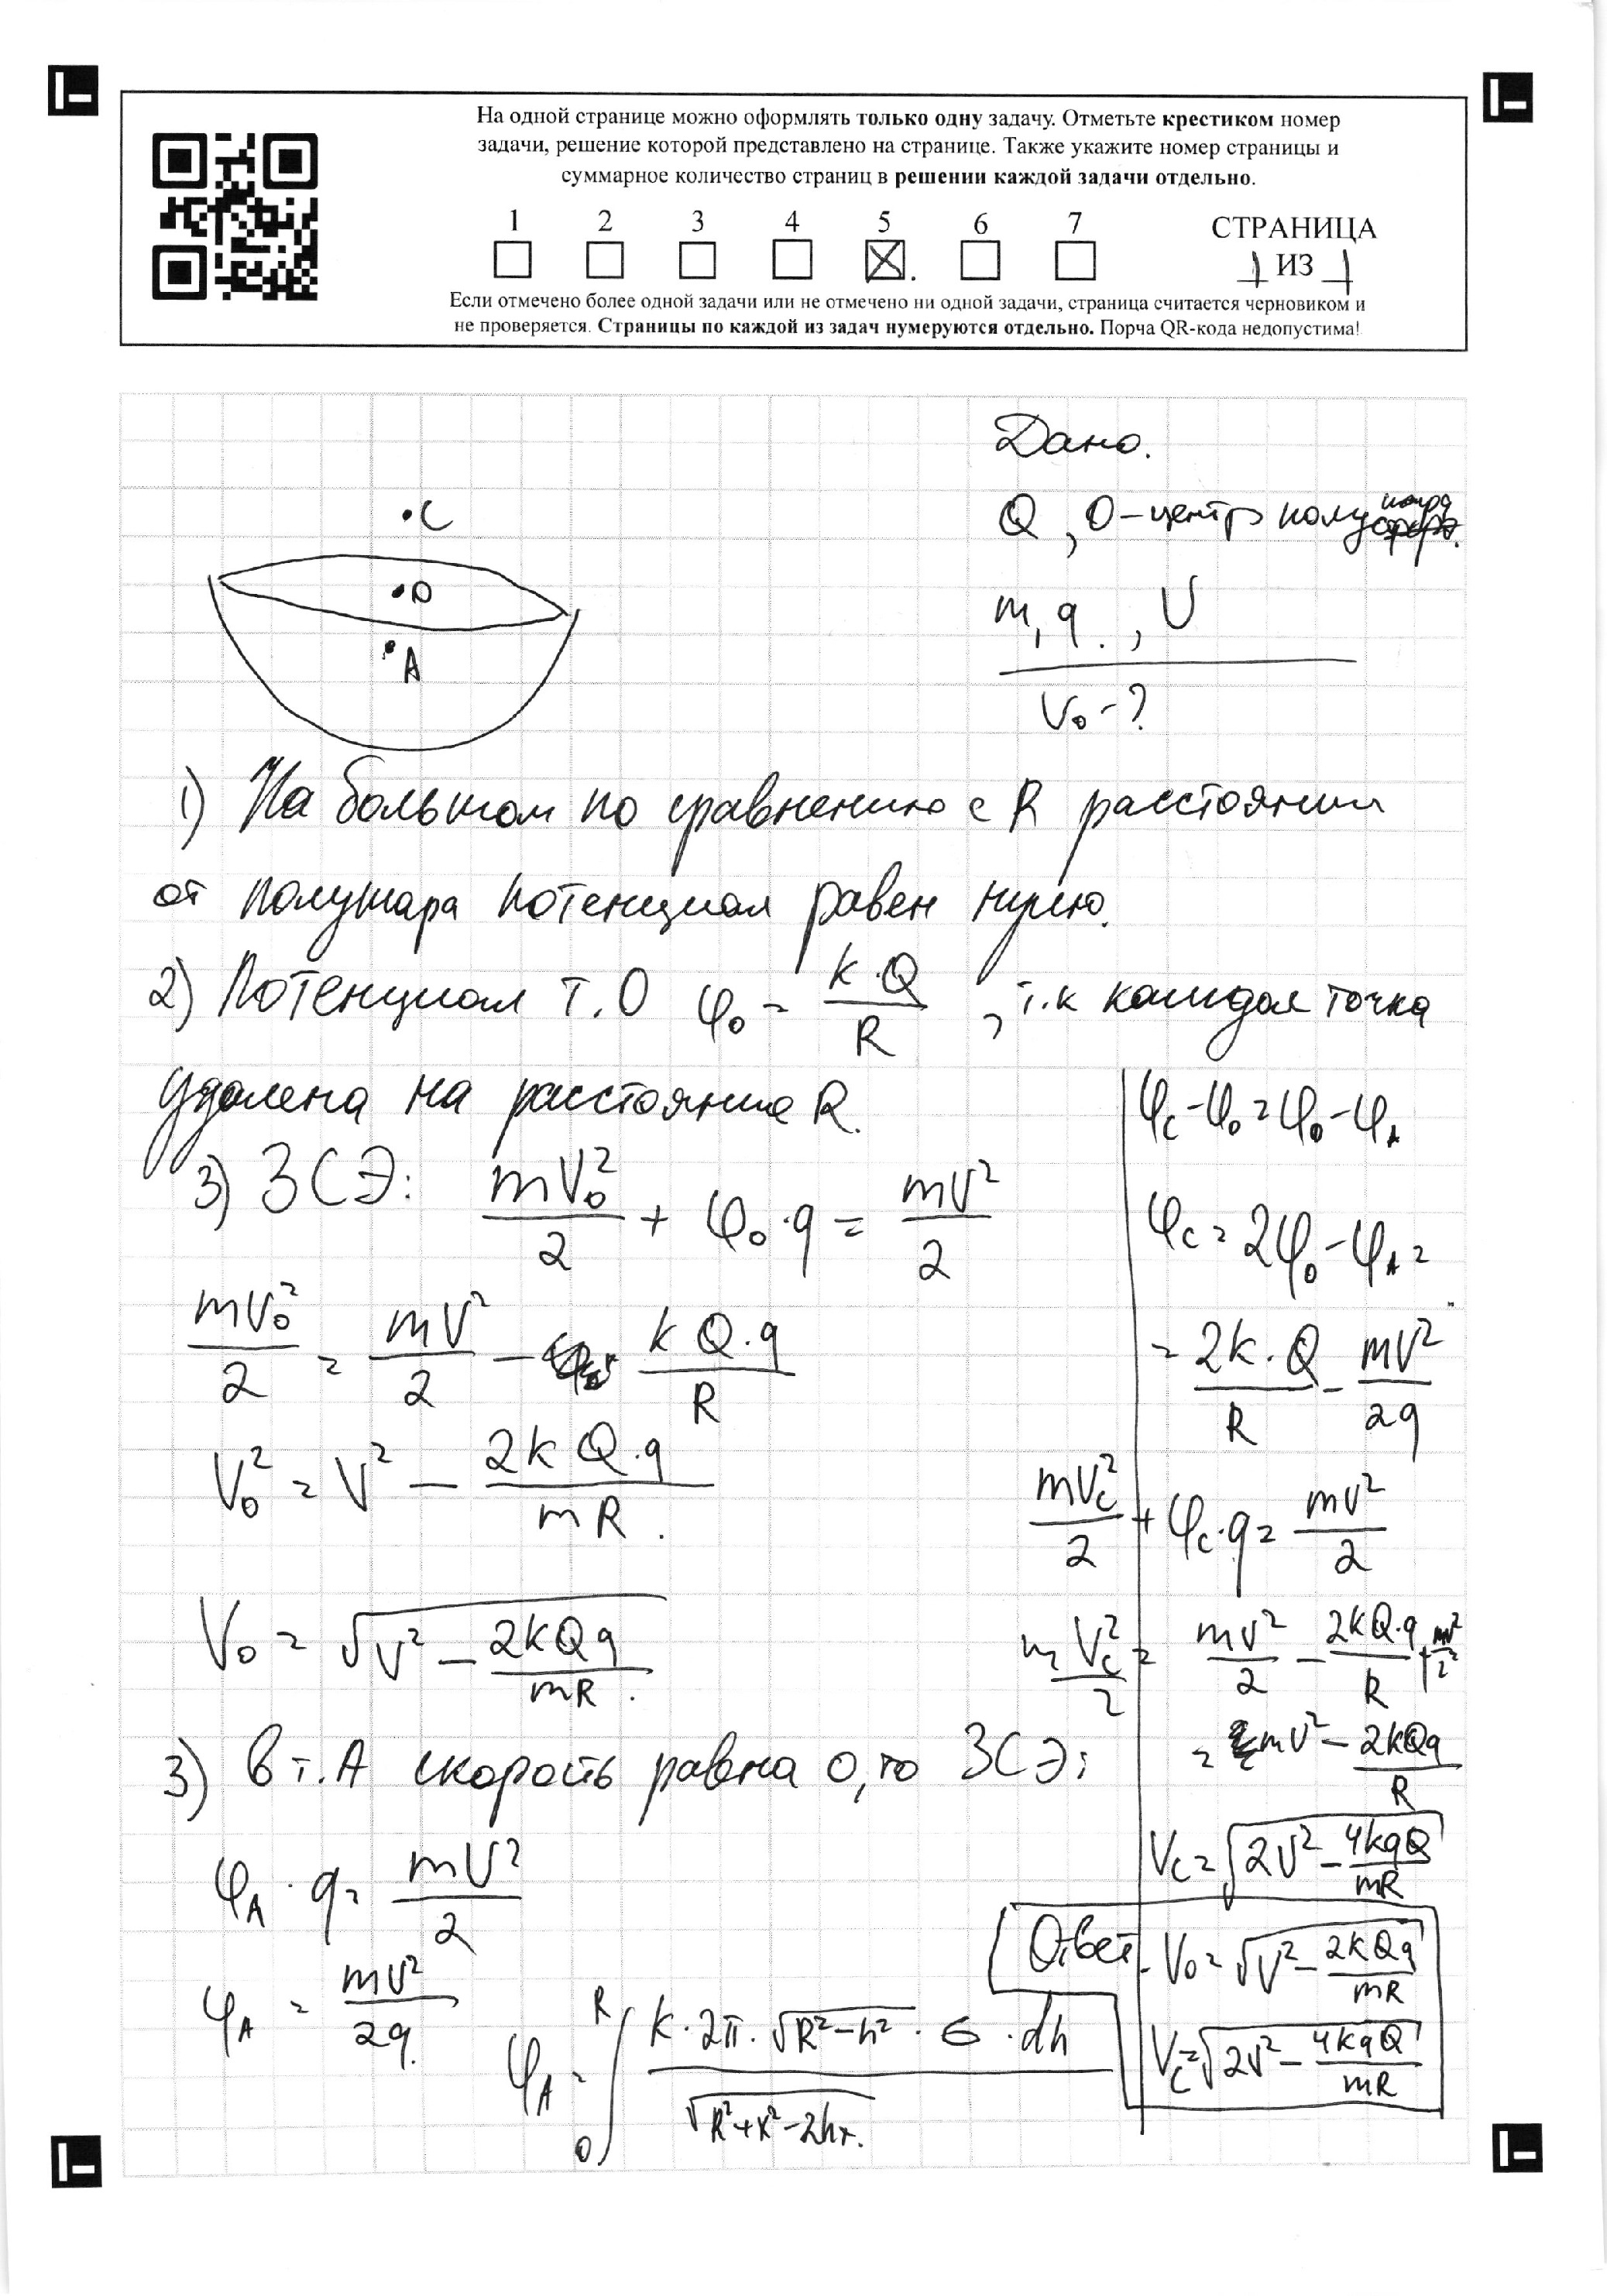 На одной странице можно оформлять только одну задачу. Отметьте крестиком номер
задачи, решение которой представлено на странице. Также укажите номер страницы и
суммарное количество страниц в решении каждой задачи отдельно.
1 2 3 4 5 6 7 СТРАНИЦА
1 ИЗ 1
Если отмечено более одной задачи или не отмечено ни одной задачи, страница считается черновиком и
не проверяется. Страницы по каждой из задач нумеруются отдельно. Порча QR-кода недопустима!
Дано.
Q, O-центр полушара
m, q., V
V₀-?
C
O
A
1) На большом по сравнению с R расстоянии
от полушара потенциал равен нулю.
2) Потенциал т.O φ₀ = k·Q/R, т.к каждая точка
удалена на расстояние R.
3) ЗСЭ: mV₀²/2 + φ₀·q = mV²/2
mV₀²/2 = mV²/2 - kQ·q/R
V₀² = V² - 2kQ·q/mR.
V₀ = √(V² - 2kQq/mR).
3) В т.A скорость равна 0, то ЗСЭ:
φA·q = mV²/2
φA = mV²/2q.
φA = ∫₀ᴿ k·2π·√(R²-h²)·σ·dh/√(R²+x²-2hx).
φc-φ₀=φ₀-φA
φc = 2φ₀-φA =
= 2k·Q/R - mV²/2q
mVc²/2 + φc·q = mV²/2
mVc²/2 = mV²/2 - 2kQ·q/R + mV²/2
= mV² - 2kQq/R
Vc = √(2V² - 4kqQ/mR)
Ответ - V₀ = √(V² - 2kQq/mR)
Vc = √(2V² - 4kqQ/mR)